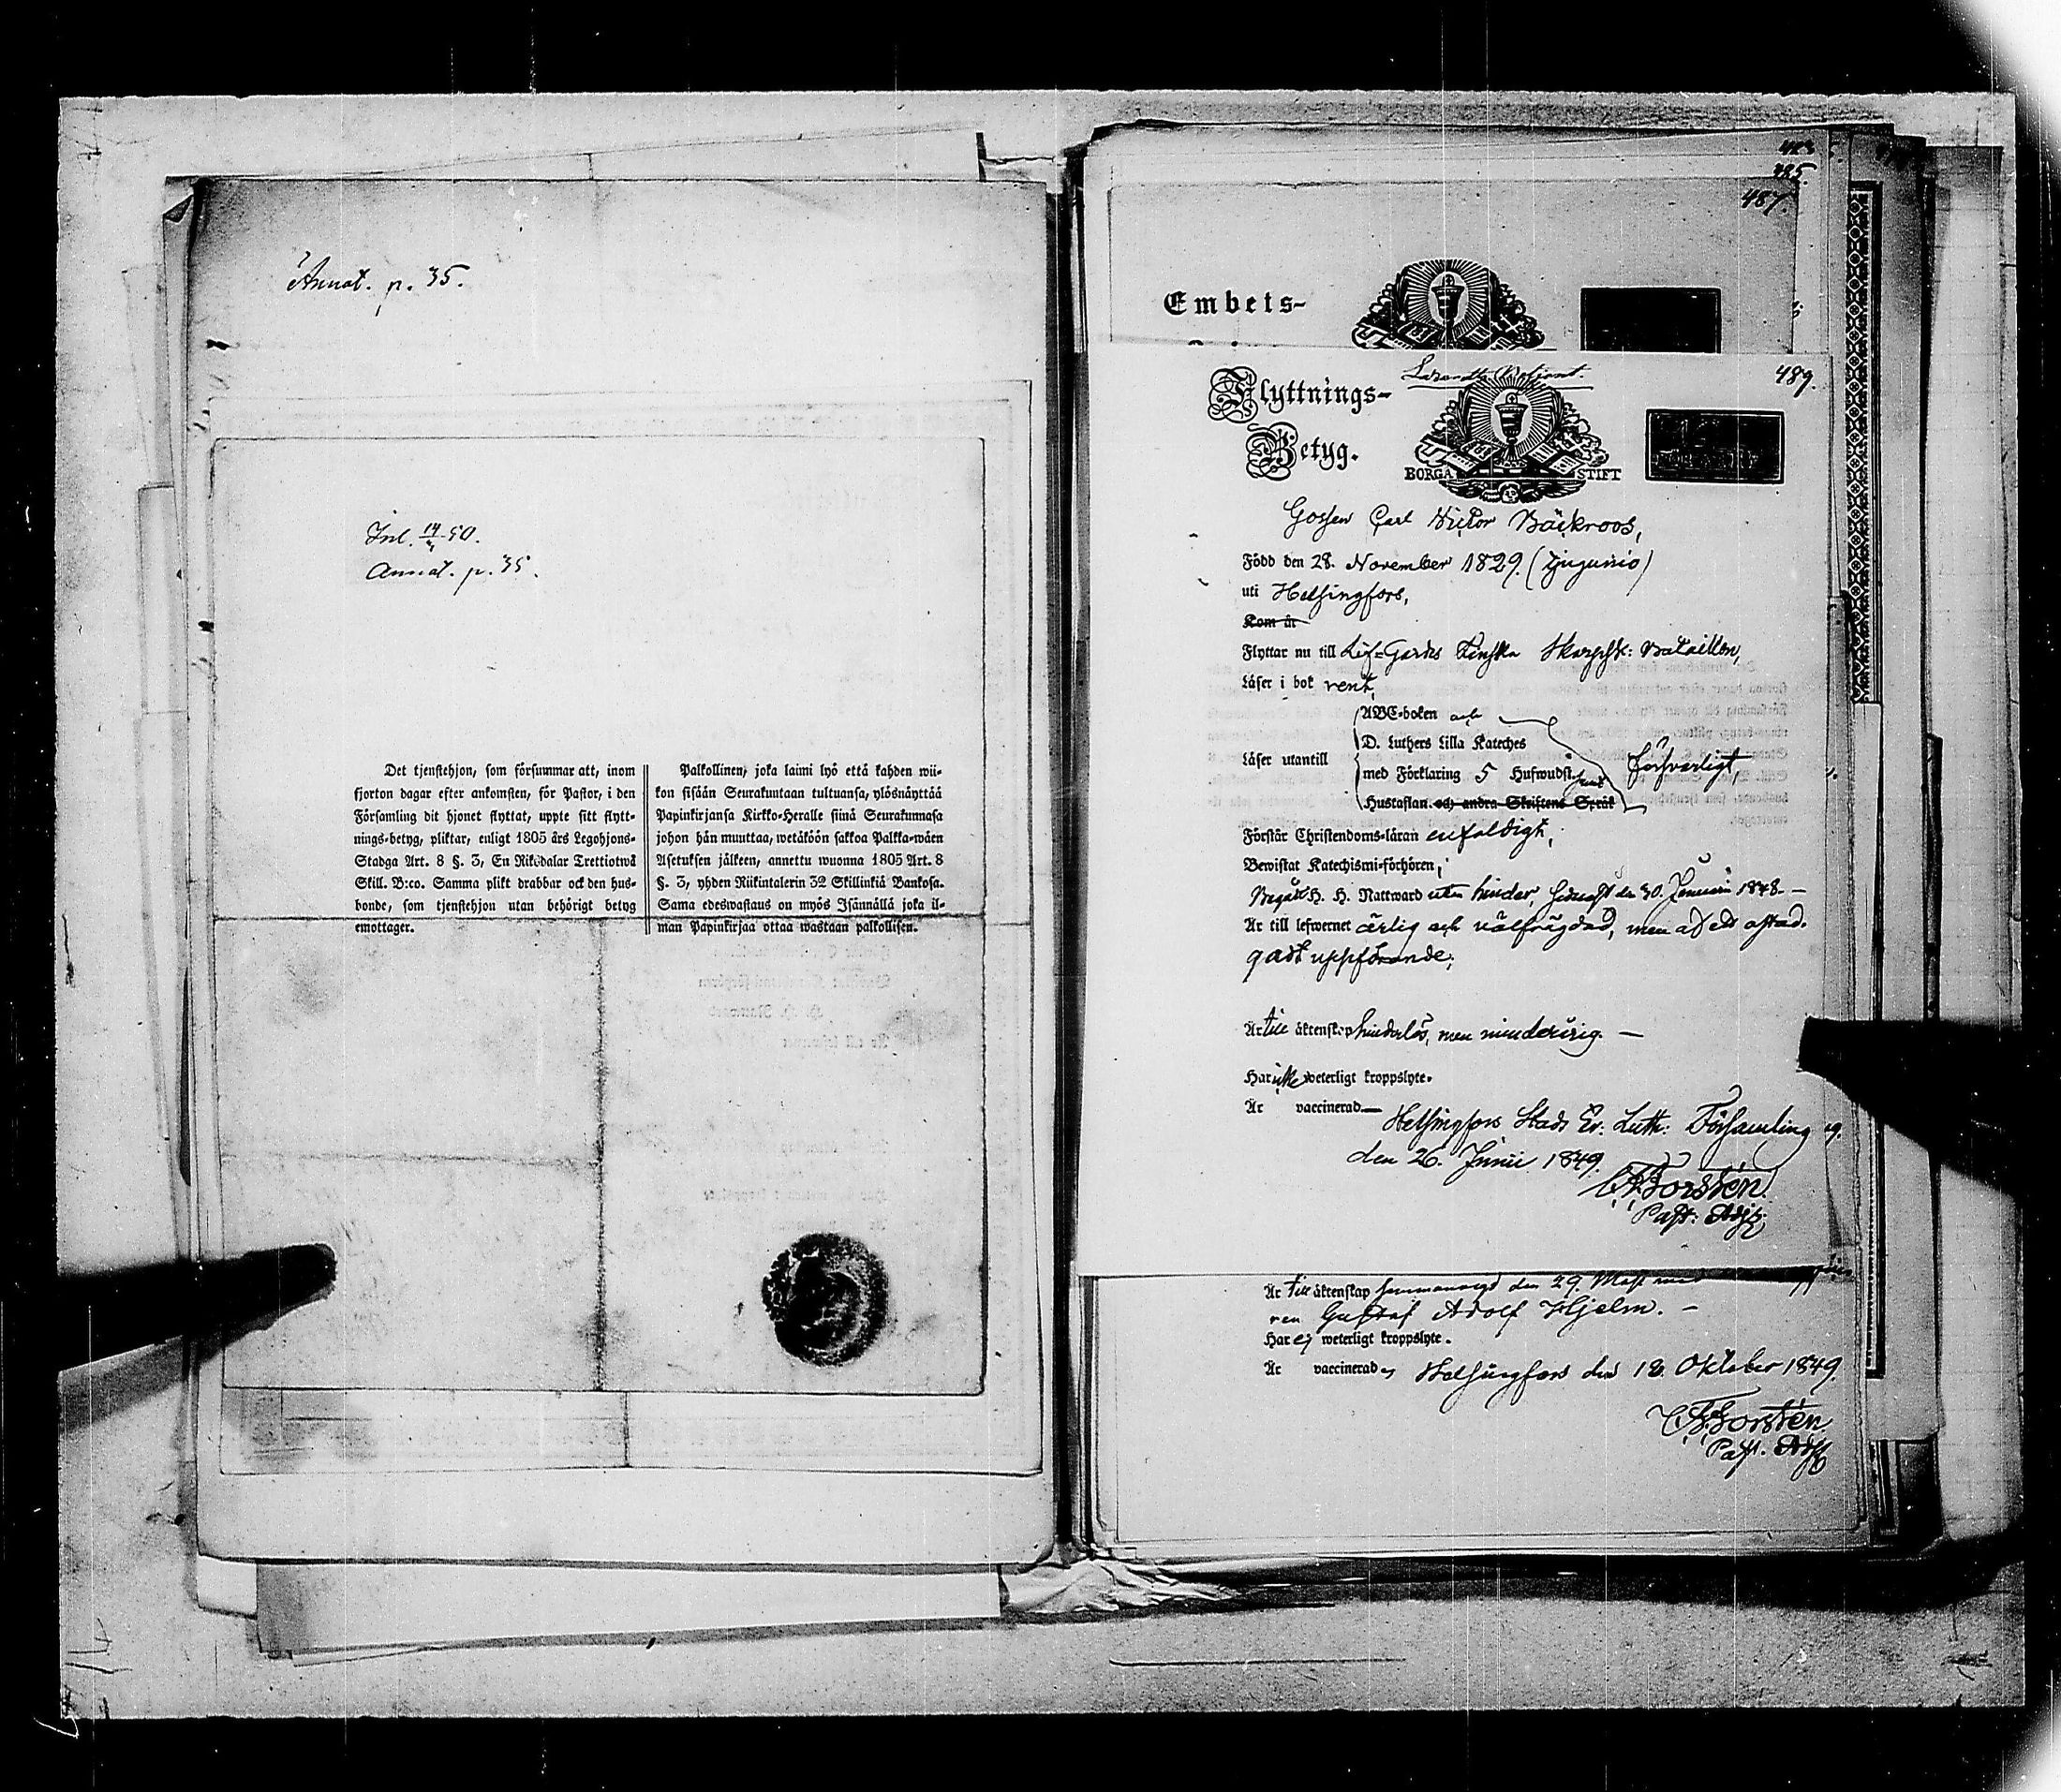 Annot. p. 35.
Inl. 14/3 50.
Annot. p. 35.
Det tjenstehjon, som försummar att, inom
fjorton dagar efter ankomsten, för Pastor, i den
Församling dit hjonet flyttat, uppte sitt flytt-
nings-betyg, pliktar, enligt 1805 års Legohjons-
Stadga Art. 8 §. 3, En Riksdalar Trettiotwå
Skill. B:co. Samma plikt drabbar ock den hus-
bonde, som tjenstehjon utan behörigt betyg
emottager.
Palkollinen, joka laimi lyö että kahden wii-
kon sisään Seurakuntaan tultuansa, ylösnäyttää
Papinkirjansa Kirkko-Heralle siinä Seurakunnasa
johon hän muuttaa, wetäköön sakkoa Palkka-wäen
Asetuksen jälkeen, annettu wuonna 1805 Art. 8
§. 3, yhden Riikintalerin 32 Skillinkiä Bankosa.
Sama edeswastaus on myös Isännällä joka il-
man Papinkirjaa ottaa wastaan palkollisen.
485.
487.
Embets-
489.
Flyttnings-
Betyg.
BORGÅ STIFT
Gossen Carl Victor Bäckroos,
Född den 28. November 1829. (tjugunio)
uti Helsingfors,
Kom år
Flyttar nu till Lif-Gardes Finska Skarpsk: Bataillon,
Läser i bok rent,
Läser utantill
ABC-boken och
D. Luthers Lilla Kateches
med Förklaring 5 Hufwudst. samt
Hustaflan och andra Skriftens Språk
försvarligt,
Förstår Christendoms-läran enfaldigt,
Bewistat Katechismi-förhören,
Begått H. H. Nattward utan hinder, senast den 30. Januari 1848. —
Är till lefwernet ärlig och välfrägdad, men af ett ostad-
gadt uppförande;
Är till äktenskap hinderlös, men minderårig. —
Har icke weterligt kroppslyte.
Är vaccinerad —
Helsingfors Stads Ev. Luth. Församling
den 26. Junii 1849.
C F Borstén
Past: Adj:
Är till äktenskap sammanvigd den 29. Maji med
ren Gustaf Adolf Hjelm. —
Har ej weterligt kroppslyte.
Är vaccinerad, Helsingfors den 18. Oktober 1849.
C F Borstén
Past. Adj